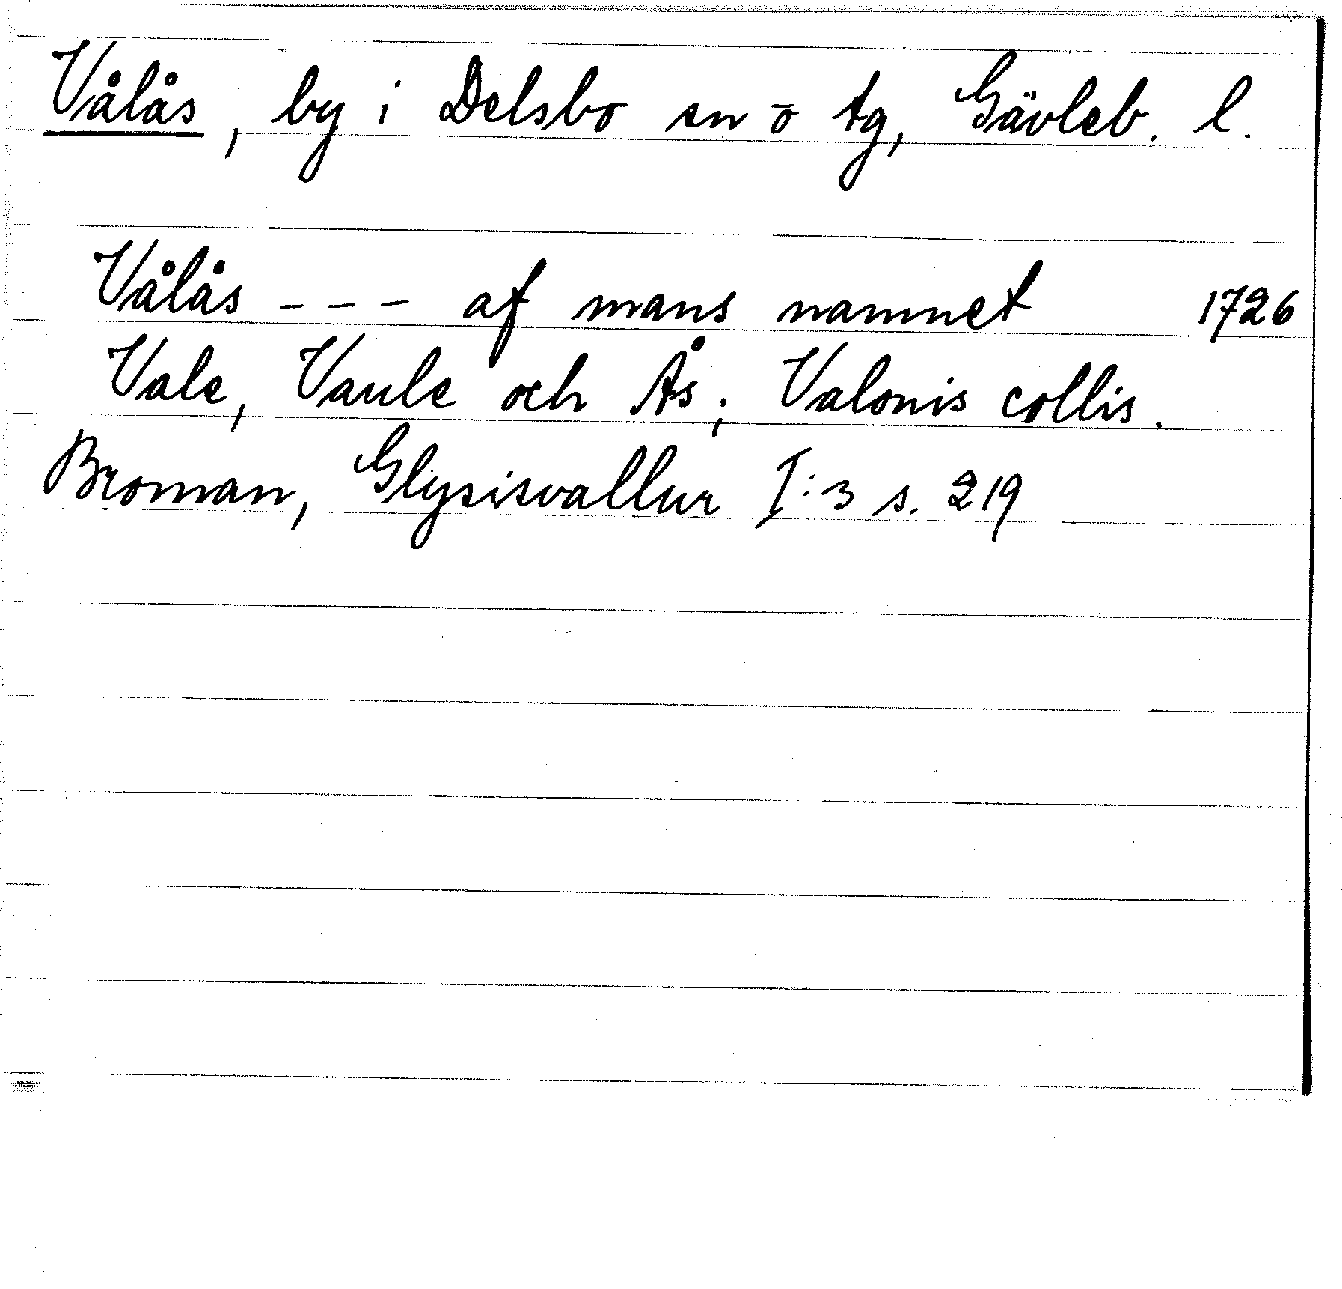 Vålås, by i Delsbo sn o tg, Gävleb. l.
Vålås - - - af mans namnet 1726
Vale, Vaule och Ås; Valonis collis.
Broman, Glysisvallur I:3 s. 219